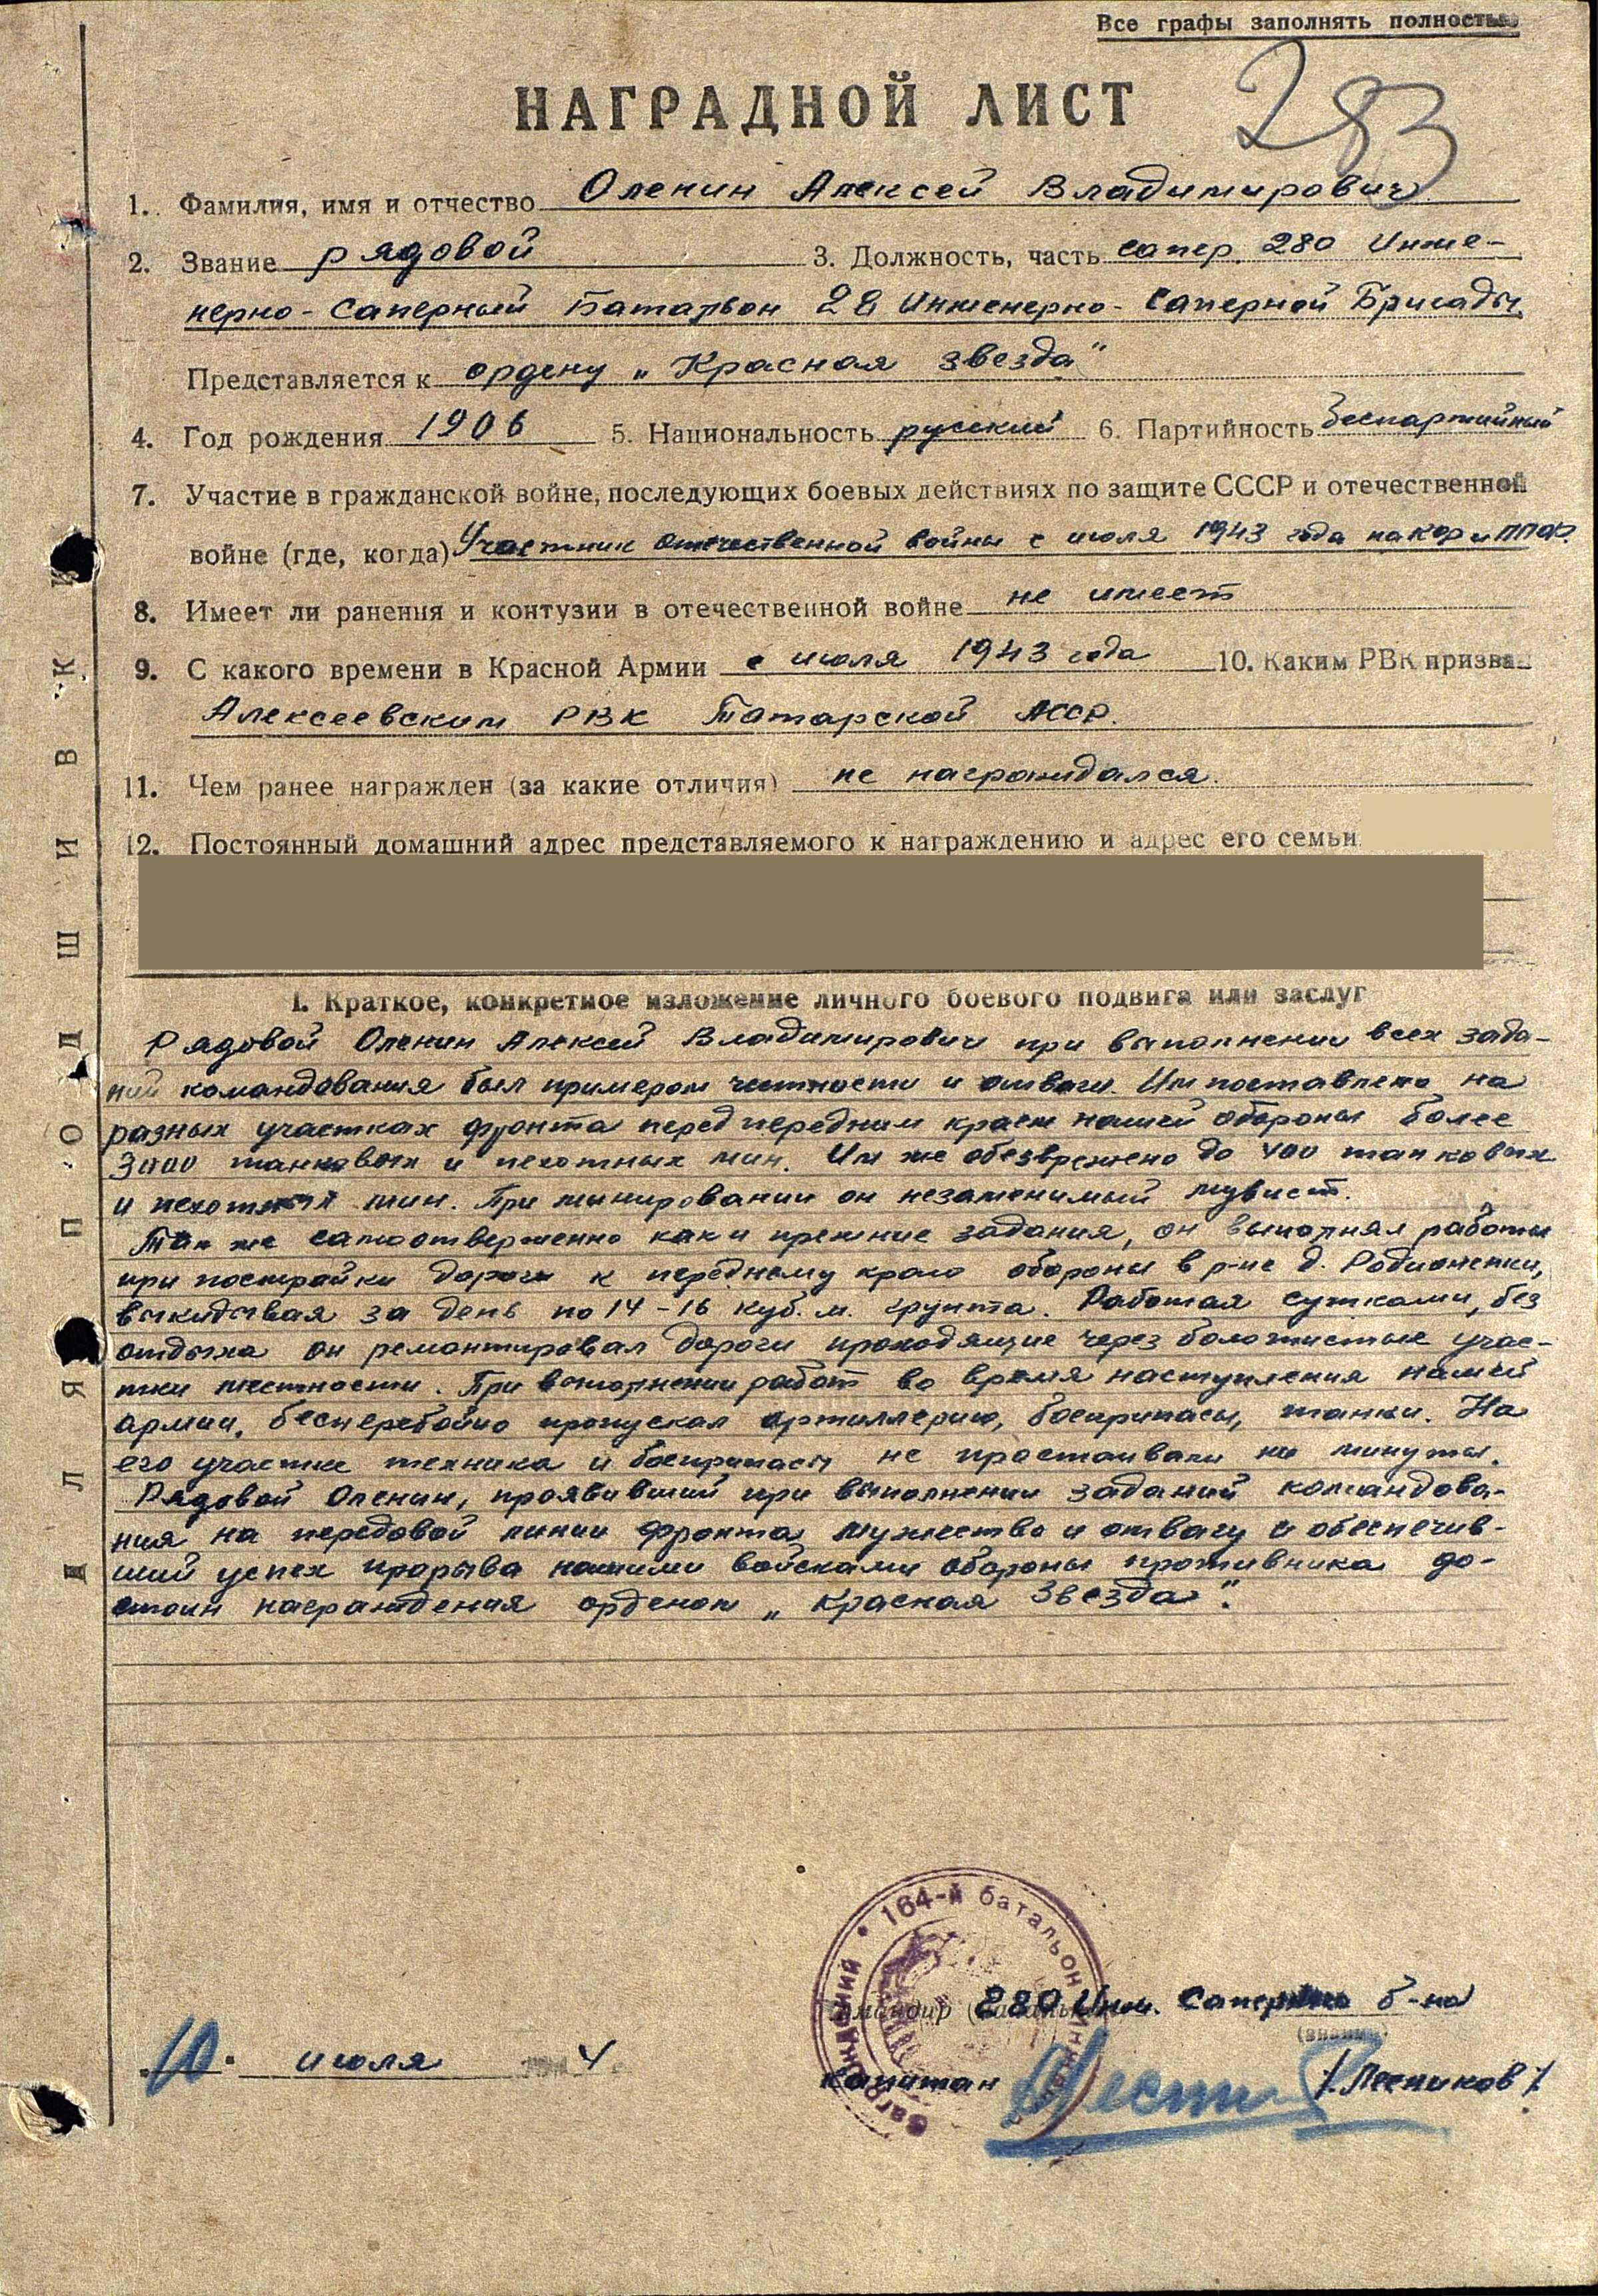 Все графы заполнять полностью
283
НАГРАДНОЙ ЛИСТ
1. Фамилия, имя и отчество Оленин Алексей Владимирович
2. Звание рядовой 3. Должность, часть сапер. 280 Инже-
нерно-Саперный Баталъон 28 Инженерно-Саперной Бригады.
Представляется к ордену „Красная звезда"
4. Год рождения 1906 5. Национальность русский 6. Партийность беспартийный
7. Участие в гражданской войне, последующих боевых действиях по защите СССР и отечественной
войне (где, когда) Участник отечественной войны с июля 1943 года на
8. Имеет ли ранения и контузии в отечественной войне не имеет
9. С какого времени в Красной Армии с июля 1943 года 10. Каким РВК призван
Алексеевским РВК Татарской АССР.
11. Чем ранее награжден (за какие отличия) не награждался.
12. Постоянный домашний адрес представляемого к награждению и адрес его семьи
I. Краткое, конкретное изложение личного боевого подвига или заслуг
Рядовой Оленин Алексей Владимирович при выполнении всех зада-
ний командования был примером честности и отваги. Им поставлено на
разных участках фронта перед передним краем нашей обороны более
3000 танковых и пехотных мин. Им же обезврежено до 400 танковых
и пехотных мин. При минировании он незаменимый
Так же самоотверженно как и прежние задания, он выполнял работы
при постройки дороги к переднему краю обороны в р-не д.
выкидывая за день по 14-16 куб. м. грунта. Работая сутками, без
отдыха он ремонтировал дороги проходящие через болотистые учас-
тки местности. При выполнении работ во время наступления нашей
армии, бесперебойно пропускал артиллерию, боеприпасы, танки. На
его участке техника и боеприпасы не простаивали ни минуты.
Рядовой Оленин, проявивший при выполнении заданий командова-
ния на передовой линии фронта мужество и отвагу и обеспечив-
ший успех прорыва нашими войсками обороны противника до-
стоин награждения орденом „Красная Звезда".
164-й батальон
Командир 280 Инж. Саперного б-на
(звание)
„10" июля 4
капитан /Лесников/
ДЛЯ ПОДШИВКИ